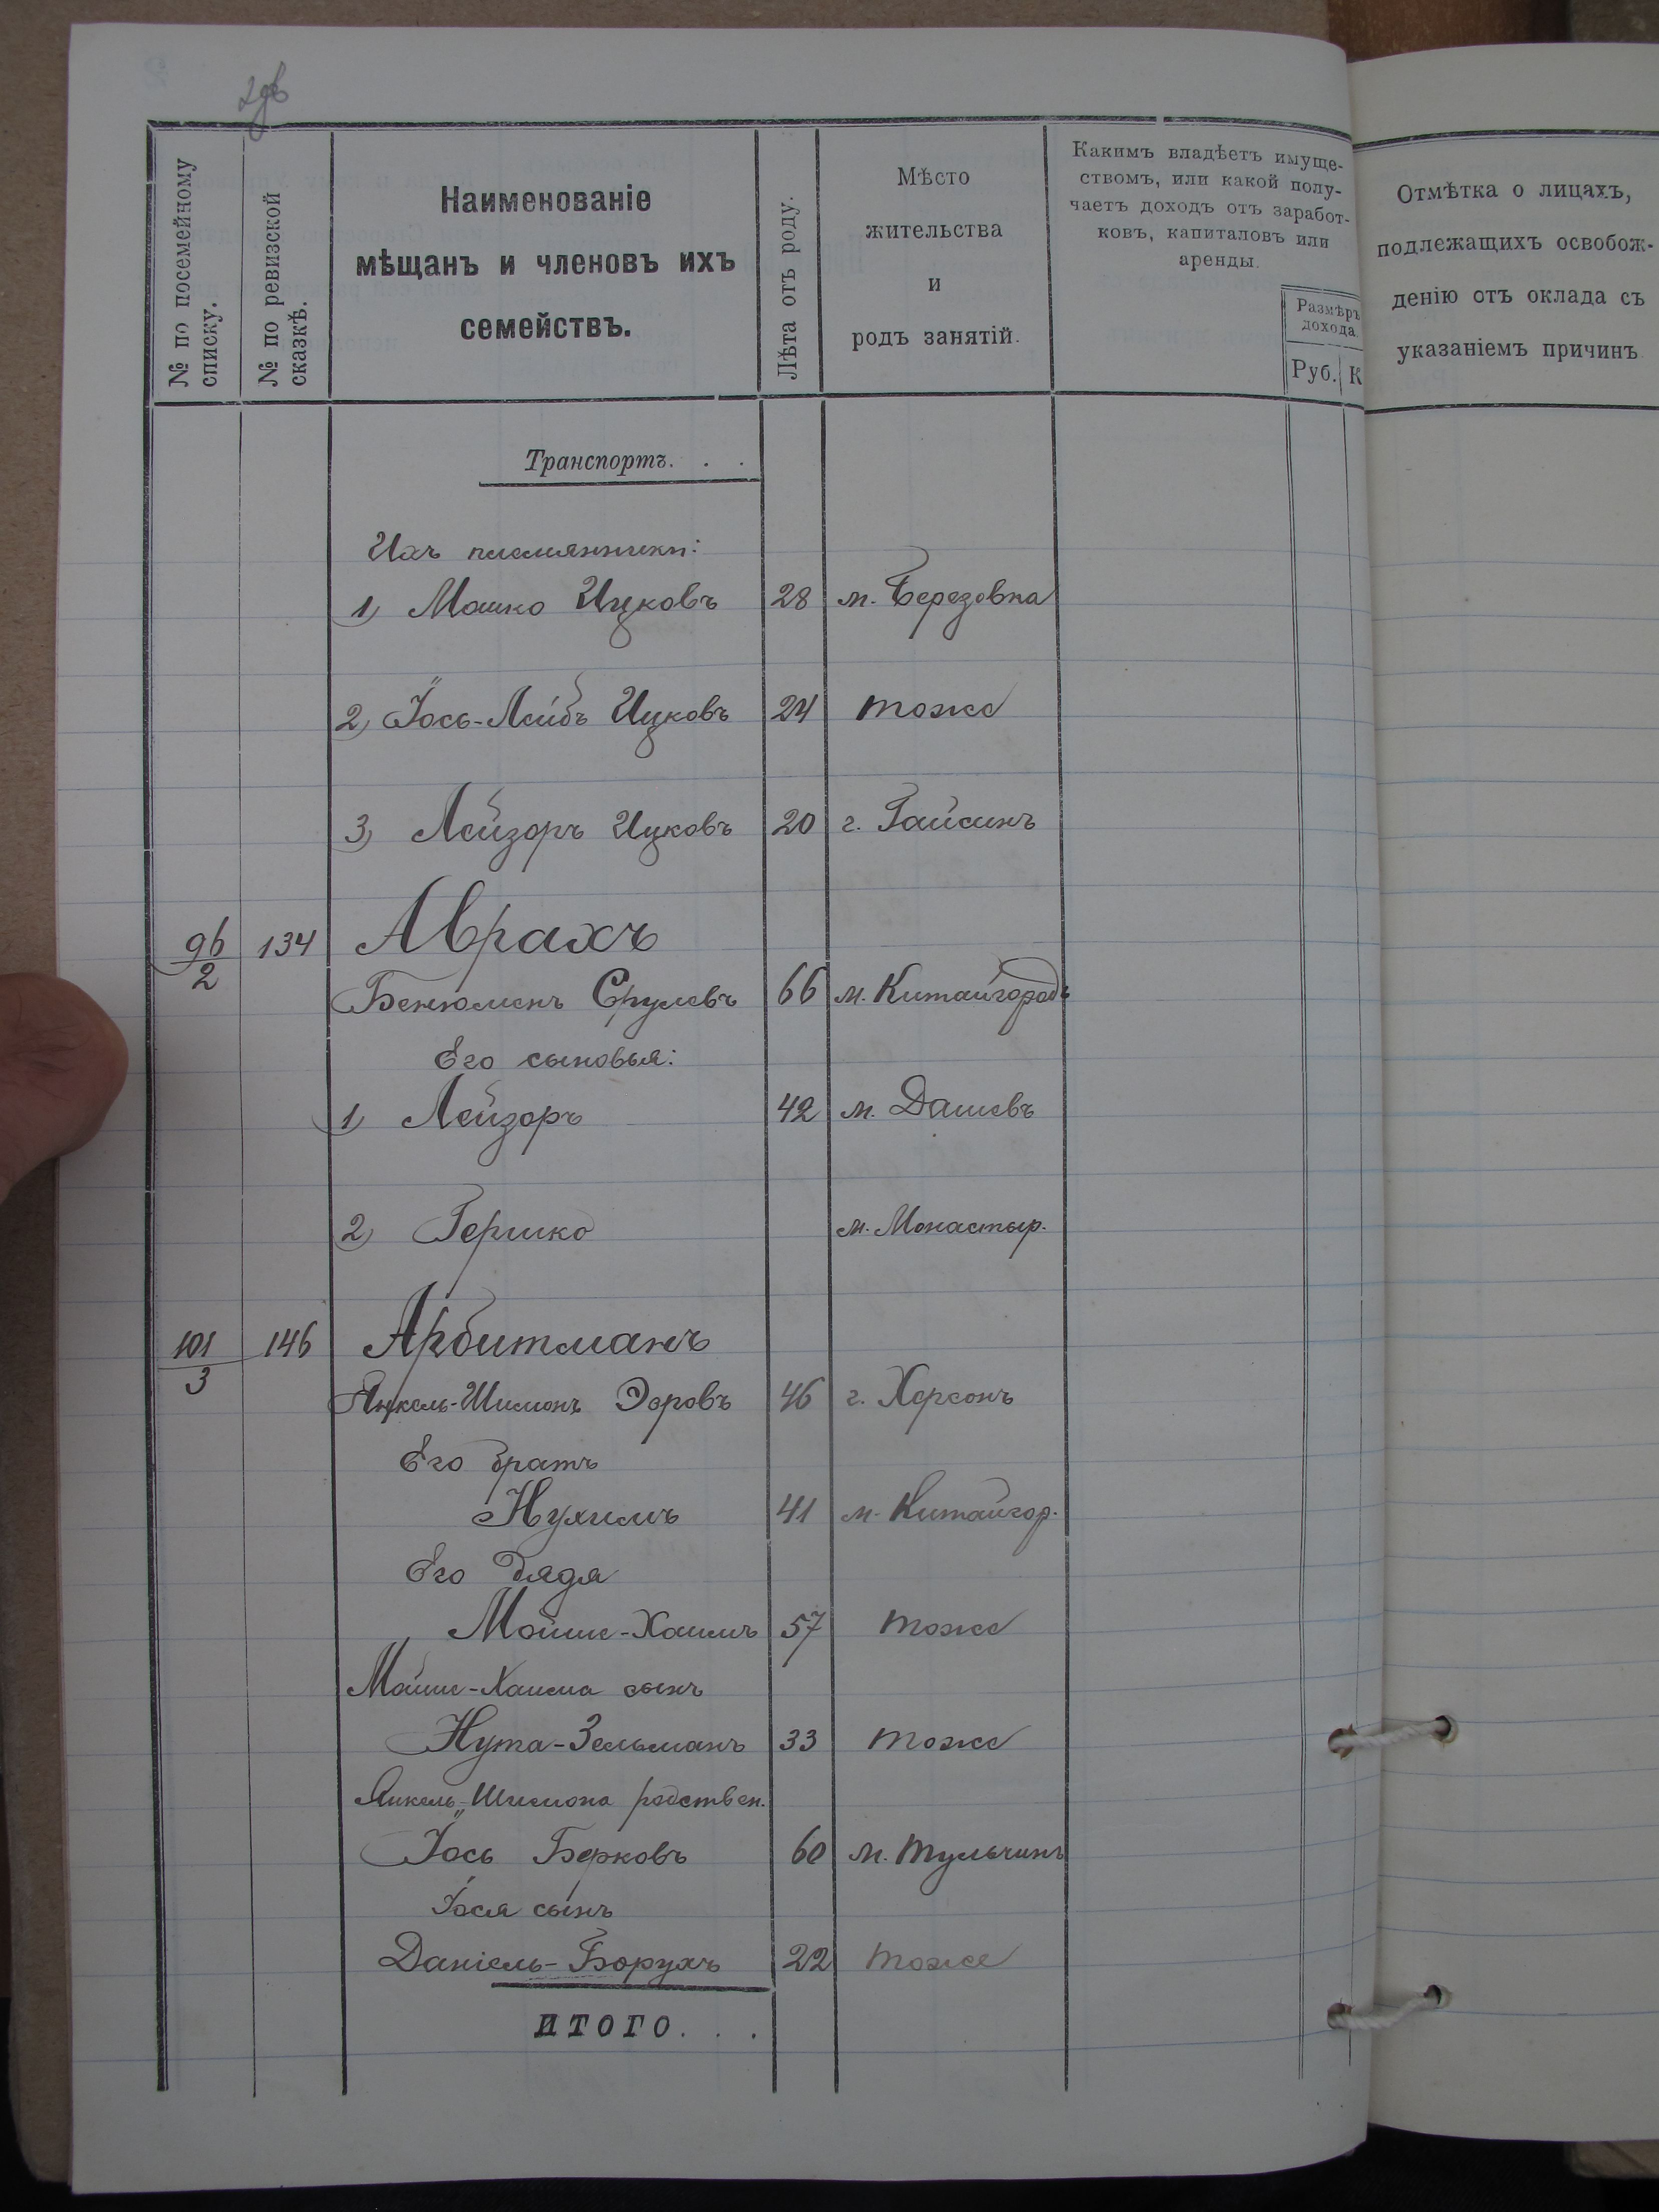 2об
№ по посемейному
списку.
№ по ревизской
сказкѣ.
Наименованіе
мѣщанъ и членовъ ихъ
семействъ.
Лѣта отъ роду.
Мѣсто
жительства
и
родъ занятій.
Какимъ владѣетъ имуще-
ствомъ, или какой полу-
чаетъ доходъ отъ заработ-
ковъ, капиталовъ или
аренды.
Размѣръ
дохода.
Руб. К
Отмѣтка о лицахъ,
подлежащихъ освобож-
денію отъ оклада съ
указаніемъ причинъ
Транспортъ. . .
Ихъ племянники:
1) Мошко Ицковъ 28 м. Березовка
2) Іось-Лейбъ Ицковъ 24 тоже
3) Лейзоръ Ицковъ 20 г. Гайсинъ
96/2 134 Аврахъ
Бенюменъ Срулевъ 66 м. Китайгородъ
Его сыновья:
1) Лейзоръ 42 м. Дашевъ
2) Гершко м. Монастыр.
101/3 146 Арбитманъ
Янкель-Шимонъ Эоровъ 46 г. Херсонъ
Его братъ
Нухимъ 41 м. Китайгор.
Его дядя
Мойше-Хаимъ 57 тоже
Мойше-Хаима сынъ
Нута-Зельманъ 33 тоже
Янкель-Шимона родствен.
Іось Берковъ 60 м. Тульчинъ
Іося сынъ
Даніель-Борухъ 22 тоже
ИТОГО. . .